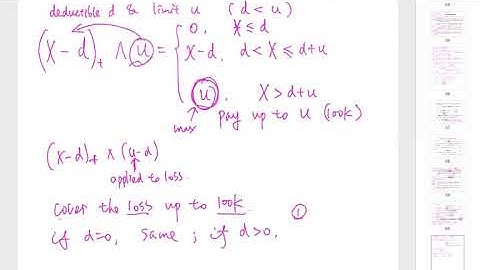 deductible d & limit u (d < u)
(X - d)₊ ∧ u = { 0, X ≤ d
X-d, d < X ≤ d+u
u, X > d+u
max pay up to u (100k)
(X-d)₊ ∧ (u-d)
applied to loss
cover the loss up to 100k ①
if d=0, same ; if d>0,